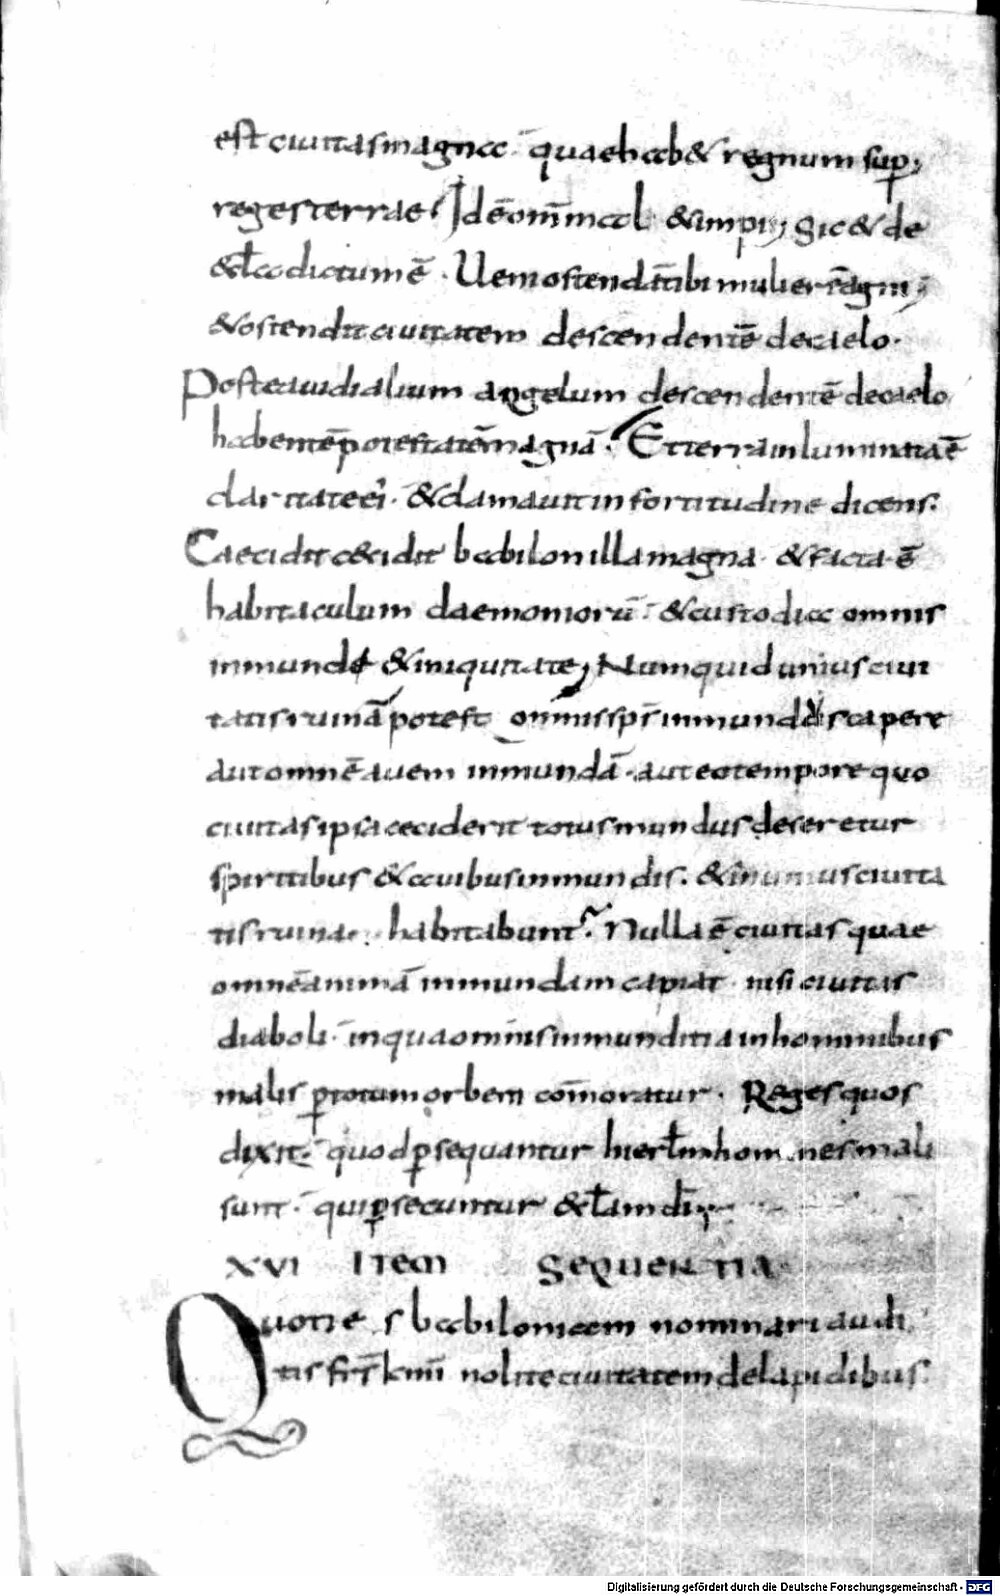 est ciuitas magna · quae hab& regnum sup̱
reges terrae · Id ē om̄ mal & impii · Sic & de
&cl̄a dictum ē · Ueni ostendā tibi mulierē agni ·
& ostendit ciuitatem descendentē de caelo ·
Postea uidi alium angelum descendentē de caelo
habentē potestatē magnā · Et terra inluminata ē
claritate ei' · & clamauit in fortitudine dicens ·
Caecidit c&idit babilon illa magna · & facta ē
habitaculum daemoniorū · & custodia omnis
inmund& & iniquitate; Numquid unius ciui
tatis ruinā potest omnis sp̄s inmundus capere
aut omnē auem inmundā · aut eo tempore quo
ciuitas ipsa ceciderit totus mundus deseretur
spiritibus & auibus inmundis · & in unius ciuita
tis ruina · habitabunt · Nulla ē ciuitas quae
omnē animā inmundam capiat · nisi ciuitas
diaboli · in qua omnis inmunditia in hominibus
malis ꝑ totum orbem com̄oratur · Reges quos
dixit · quod ꝑsequantur hierl̄m homines mali
sunt · qui ꝑsecuntur &cl̄am dī ·
XVI ITEM SEQUENTIA
Quotiens babiloniam nominari audi
tis fr̄s km̄i nolite ciuitatem de lapidibus ·
Digitalisierung gefördert durch die Deutsche Forschungsgemeinschaft - DFG